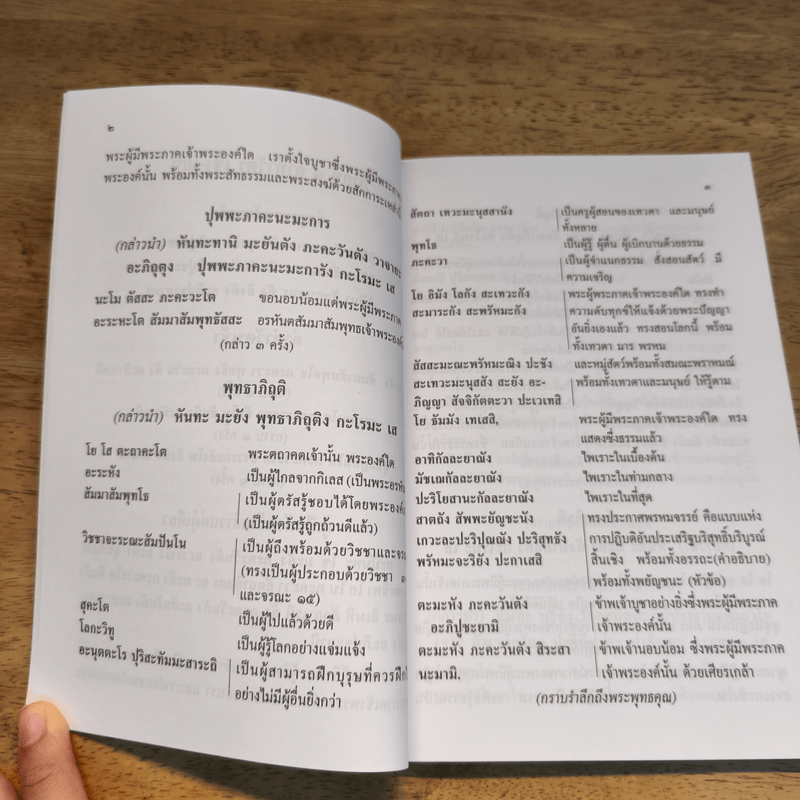 ๒
พระผู้มีพระภาคเจ้าพระองค์ใด เราตั้งใจบูชาซึ่งพระผู้มีพระภาค
พระองค์นั้น พร้อมทั้งพระสัทธรรมและพระสงฆ์ด้วยสักการะเหล่านี้
ปุพพะภาคะนะมะการ
(กล่าวนำ) หันทะทานิ มะยันตัง ภะคะวันตัง วาจายะ
อะภิถุตุง ปุพพะภาคะนะมะการัง กะโรมะ เส
นะโม ตัสสะ ภะคะวะโต ขอนอบน้อมแด่พระผู้มีพระภาค
อะระหะโต สัมมาสัมพุทธัสสะ อรหันตสัมมาสัมพุทธเจ้าพระองค์
(กล่าว ๓ ครั้ง)
พุทธาภิถุติ
(กล่าวนำ) หันทะ มะยัง พุทธาภิถุติง กะโรมะ เส
โย โส ตะถาคะโต พระตถาคตเจ้านั้น พระองค์ใด
อะระหัง เป็นผู้ไกลจากกิเลส (เป็นพระอรหัน
สัมมาสัมพุทโธ เป็นผู้ตรัสรู้ชอบได้โดยพระองค์
(เป็นผู้ตรัสรู้ถูกถ้วนดีแล้ว)
วิชชาจะระณะสัมปันโน เป็นผู้ถึงพร้อมด้วยวิชชาและจรณ
(ทรงเป็นผู้ประกอบด้วยวิชชา
และจรณะ ๑๕)
สุคะโต เป็นผู้ไปแล้วด้วยดี
โลกะวิทู เป็นผู้รู้โลกอย่างแจ่มแจ้ง
อะนุตตะโร ปุริสะทัมมะสาระถิ เป็นผู้สามารถฝึกบุรุษที่ควรฝึกได้
อย่างไม่มีผู้อื่นยิ่งกว่า
๓
สัตถา เทวะมะนุสสานัง เป็นครูผู้สอนของเทวดา และมนุษย์
ทั้งหลาย
พุทโธ เป็นผู้รู้ ผู้ตื่น ผู้เบิกบานด้วยธรรม
ภะคะวา เป็นผู้จำแนกธรรม สั่งสอนสัตว์ มี
ความเจริญ
โย อิมัง โลกัง สะเทวะกัง พระผู้พระภาคเจ้าพระองค์ใด ทรงทำ
สะมาระกัง สะพรัหมะกัง ความดับทุกข์ให้แจ้งด้วยพระปัญญา
อันยิ่งเองแล้ว ทรงสอนโลกนี้ พร้อม
ทั้งเทวดา มาร พรหม
สัสสะมะณะพรัหมะณิง ปะชัง และหมู่สัตว์พร้อมทั้งสมณะพราหมณ์
สะเทวะมะนุสสัง สะยัง อะ- พร้อมทั้งเทวดาและมนุษย์ ให้รู้ตาม
ภิญญา สัจจิกัตตะวา ปะเวเทสิ
โย ธัมมัง เทเสสิ, พระผู้มีพระภาคเจ้าพระองค์ใด ทรง
แสดงซึ่งธรรมแล้ว
อาทิกัลละยาณัง ไพเราะในเบื้องต้น
มัชเฌกัลละยาณัง ไพเราะในท่ามกลาง
ปะริโยสานะกัลละยาณัง ไพเราะในที่สุด
สาตถัง สัพพะยัญชะนัง ทรงประกาศพรหมจรรย์ คือแบบแห่ง
เกวะละปะริปุณณัง ปะริสุทธัง การปฏิบัติอันประเสริฐบริสุทธิ์บริบูรณ์
พรัหมะจะริยัง ปะกาเสสิ สิ้นเชิง พร้อมทั้งอรรถะ(คำอธิบาย)
พร้อมทั้งพยัญชนะ (หัวข้อ)
ตะมะหัง ภะคะวันตัง ข้าพเจ้าบูชาอย่างยิ่งซึ่งพระผู้มีพระภาค
อะภิปูชะยามิ เจ้าพระองค์นั้น
ตะมะหัง ภะคะวันตัง สิระสา ข้าพเจ้านอบน้อม ซึ่งพระผู้มีพระภาค
นะมามิ. เจ้าพระองค์นั้น ด้วยเศียรเกล้า
(กราบรำลึกถึงพระพุทธคุณ)